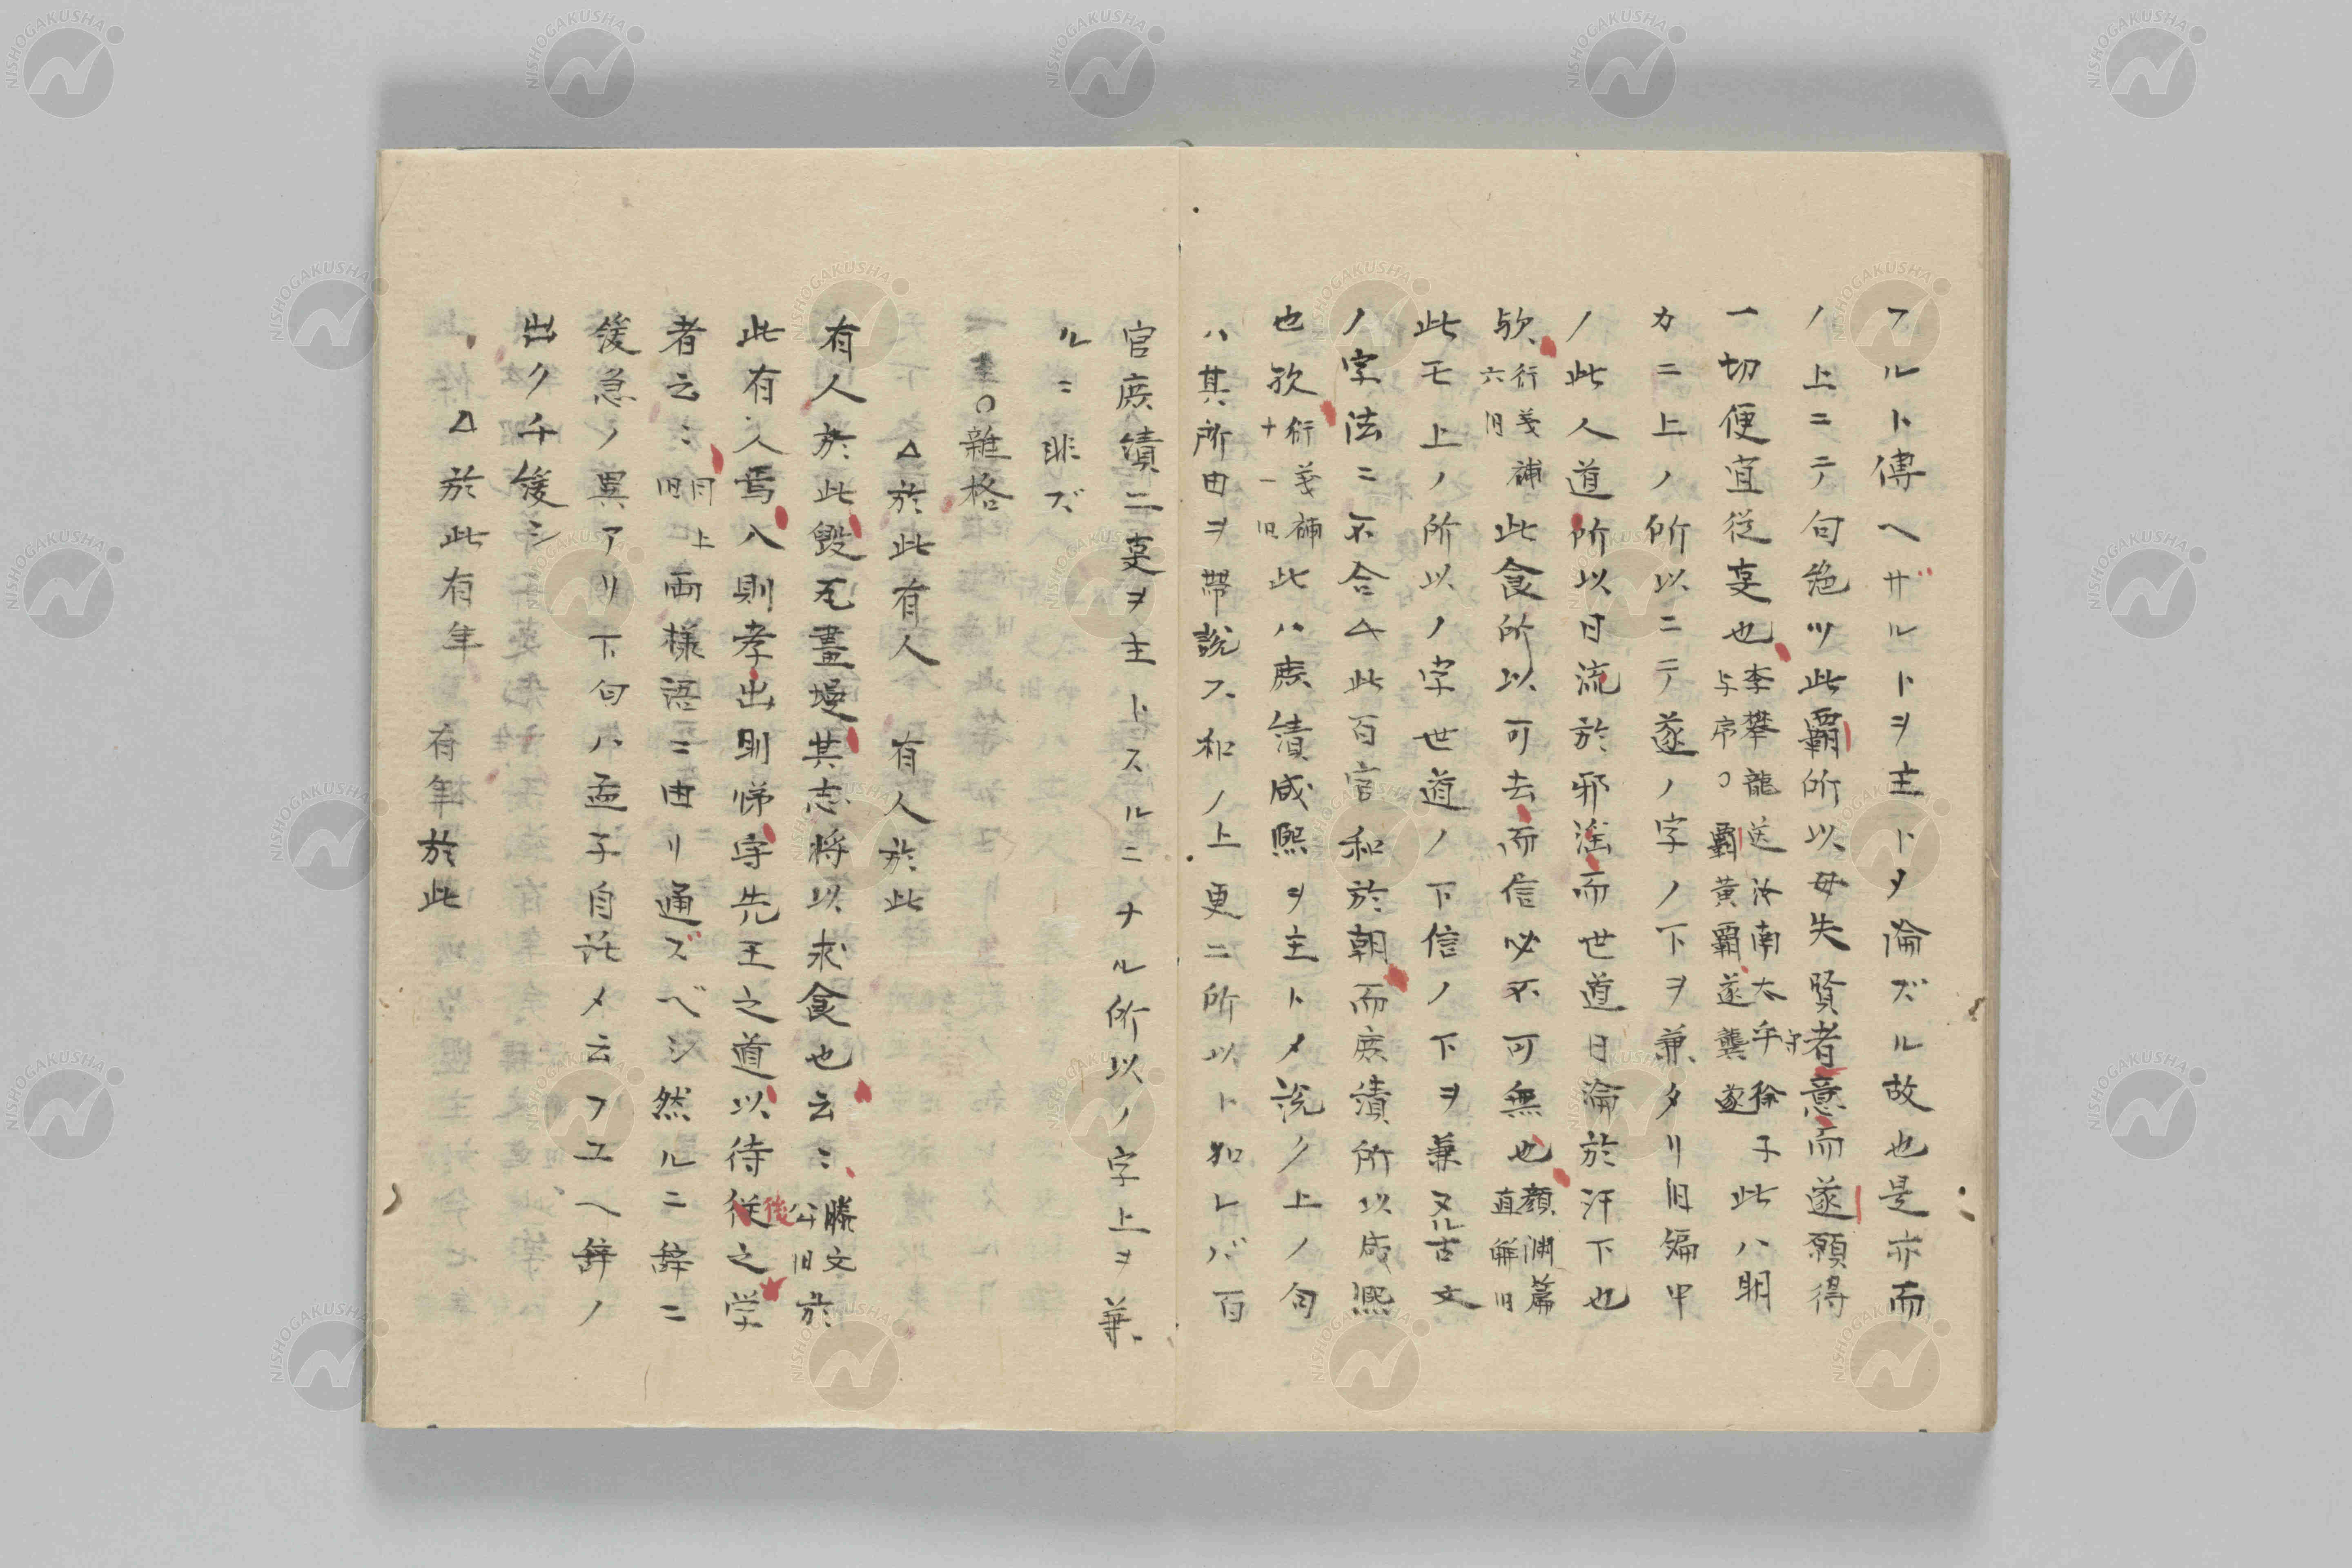 フルト傳ヘザルトヲ主トメ論ズル故也是亦而
ノ上ニテ句絶ツ此覇所以毋失賢者意而遂願得
一切便宜従事也李攀龍送汝南太守徐子与序○覇黄覇遂龔遂此ハ明
カニ上ノ所以ニテ遂ノ字ノ下ヲ兼タリ旧編中
ノ此人道所以日流於邪淫而世道日淪於汙下也
欤衍義補六旧此食所以可去而信必不可無也顔淵篇直解旧
此モ上ノ所以ノ字世道ノ下信ノ下ヲ兼ヌル古文
ノ字法ニ不合△此百官和於朝而庶績所以咸熙
也欤衍義補十一旧此ハ庶績咸熙ヲ主トメ説ク上ノ句
ハ其所由ヲ帯説ス和ノ上更ニ所以ト如レバ百
官庶績二事ヲ主トスルニナル所以ノ字上ヲ兼
ルニ非ズ
一李○雜格
△於此有人　有人於此
有人於此毀瓦畫墁其志將以求食也云〻滕文公旧於
此有人焉入則孝出則悌守先王之道以待後之学
者云〻同上旧両様語ニ由リ通ズベシ然ルニ辞ニ
緩急ノ異アリ下句ハ孟子自託メ云フユヘ辞ノ
出ク千緩シ
△於此有年　有年於此